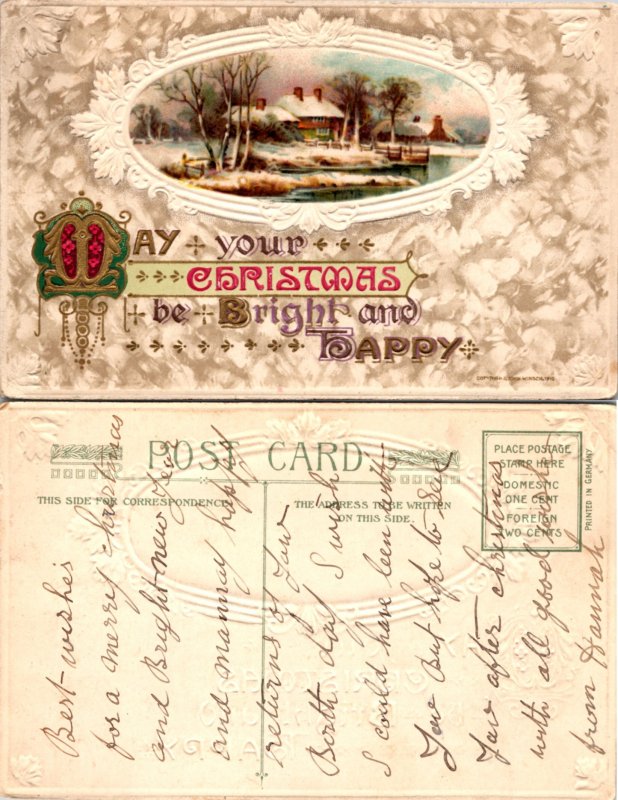 MAY your
CHRISTMAS
be Bright and
HAPPY
COPYRIGHT JOHN WINSCH, 1910
POST CARD
THIS SIDE FOR CORRESPONDENCE
THE ADDRESS TO BE WRITTEN
ON THIS SIDE.
PLACE POSTAGE
STAMP HERE
DOMESTIC
ONE CENT
FOREIGN
TWO CENTS
PRINTED IN GERMANY
Best wishes
for a merry christmas
and Bright new year
and manny happy
returns of yow
Borth day I wish
I could have been with
yow But hope to see
yow after christmas
with all good wishes
from Hannah